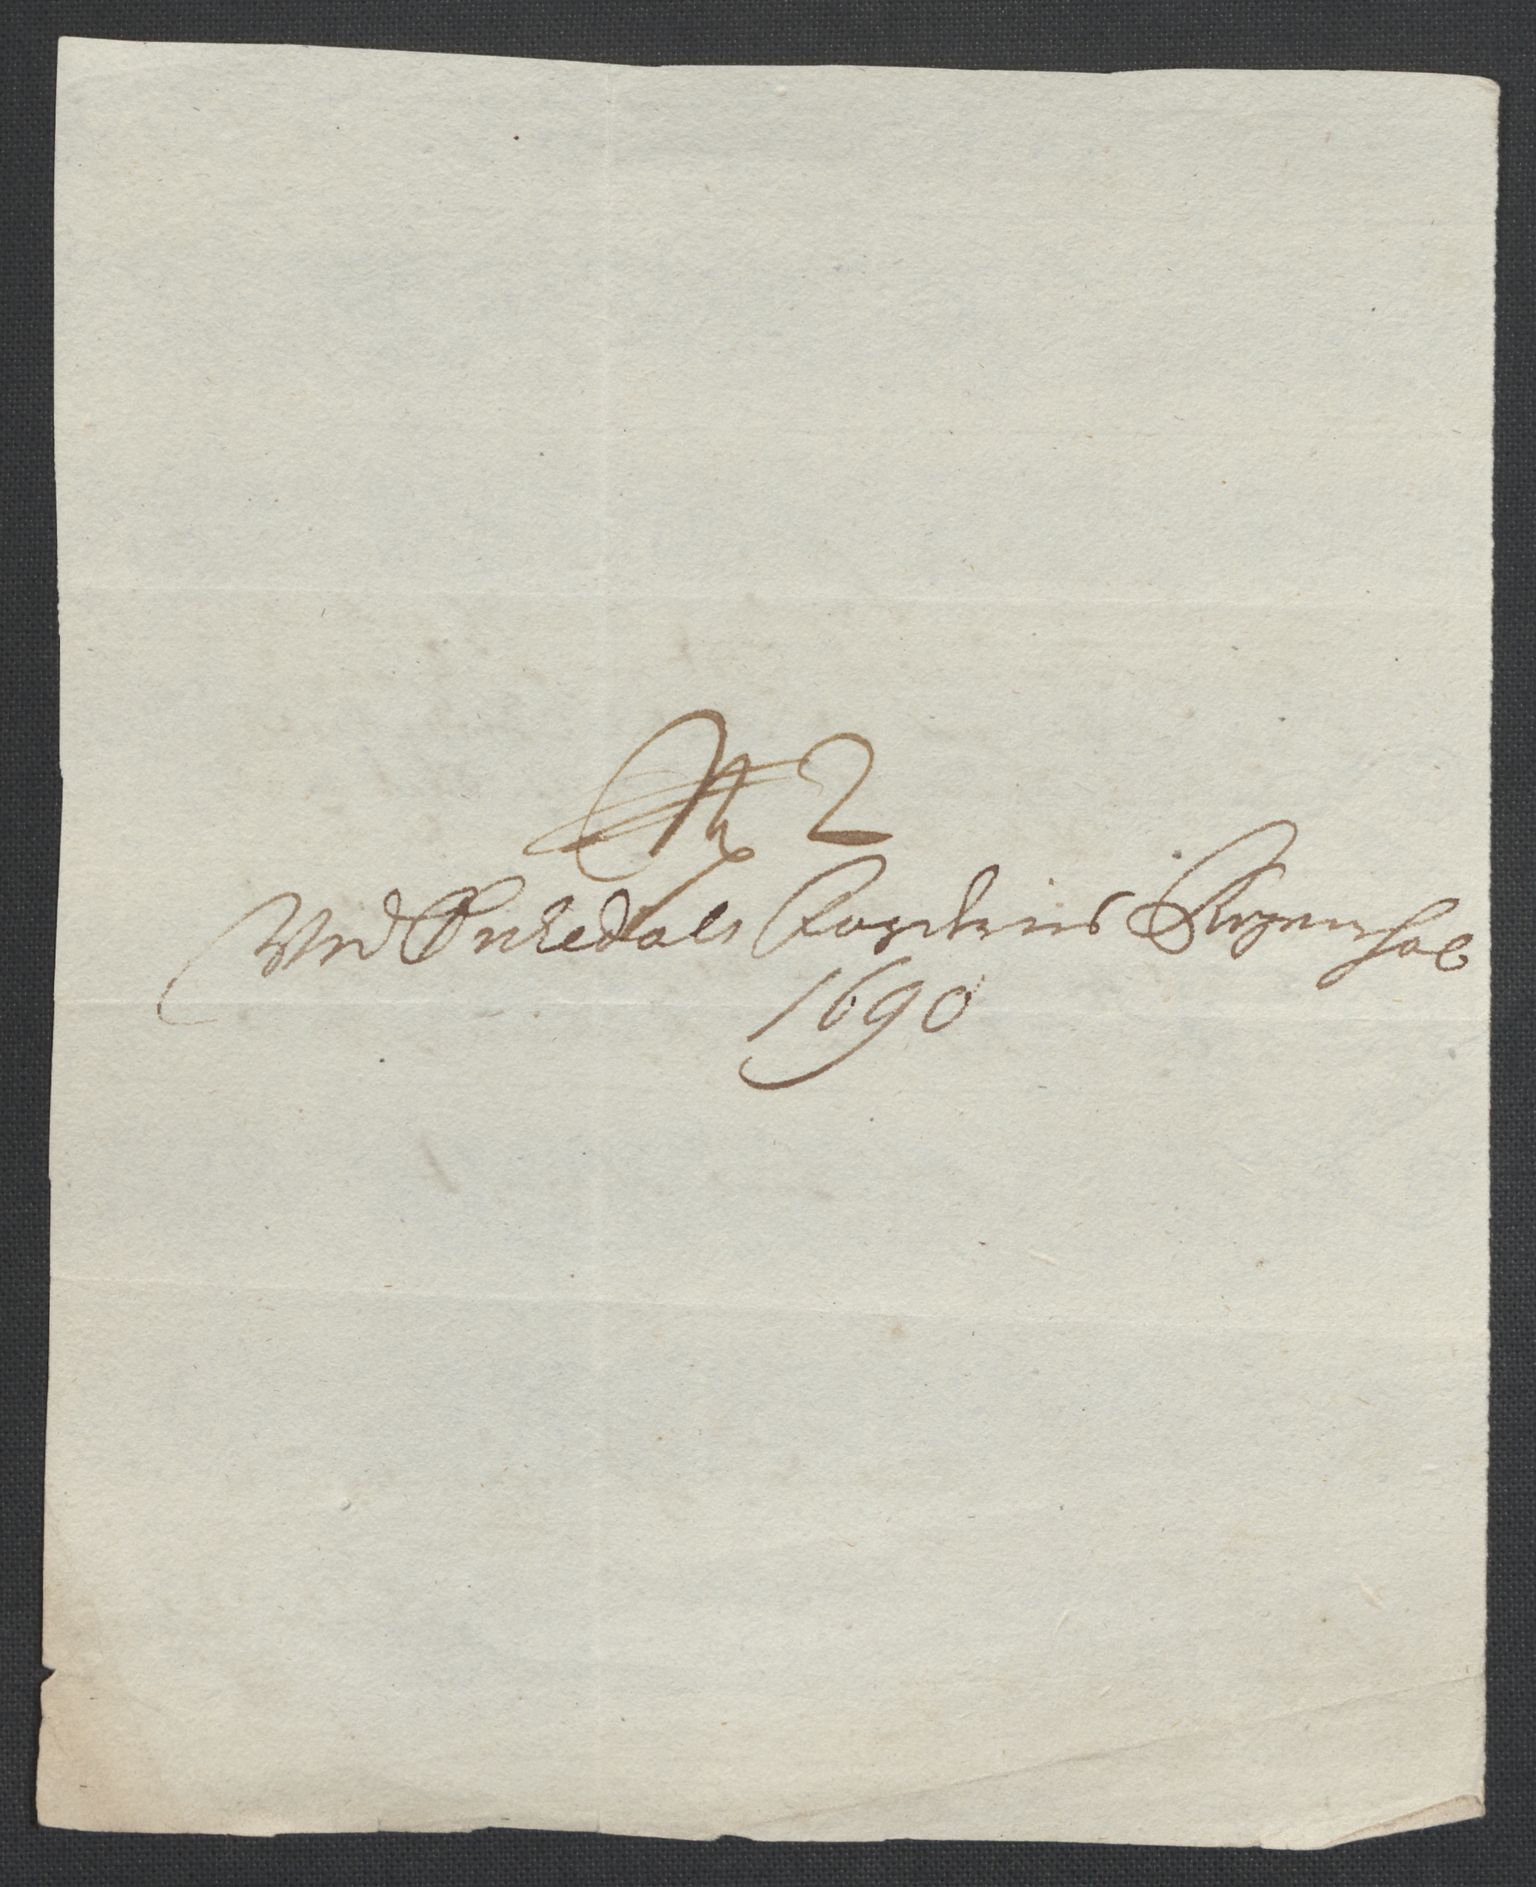 No 2
Ved Orkedals Fogderies Regenskab
1690